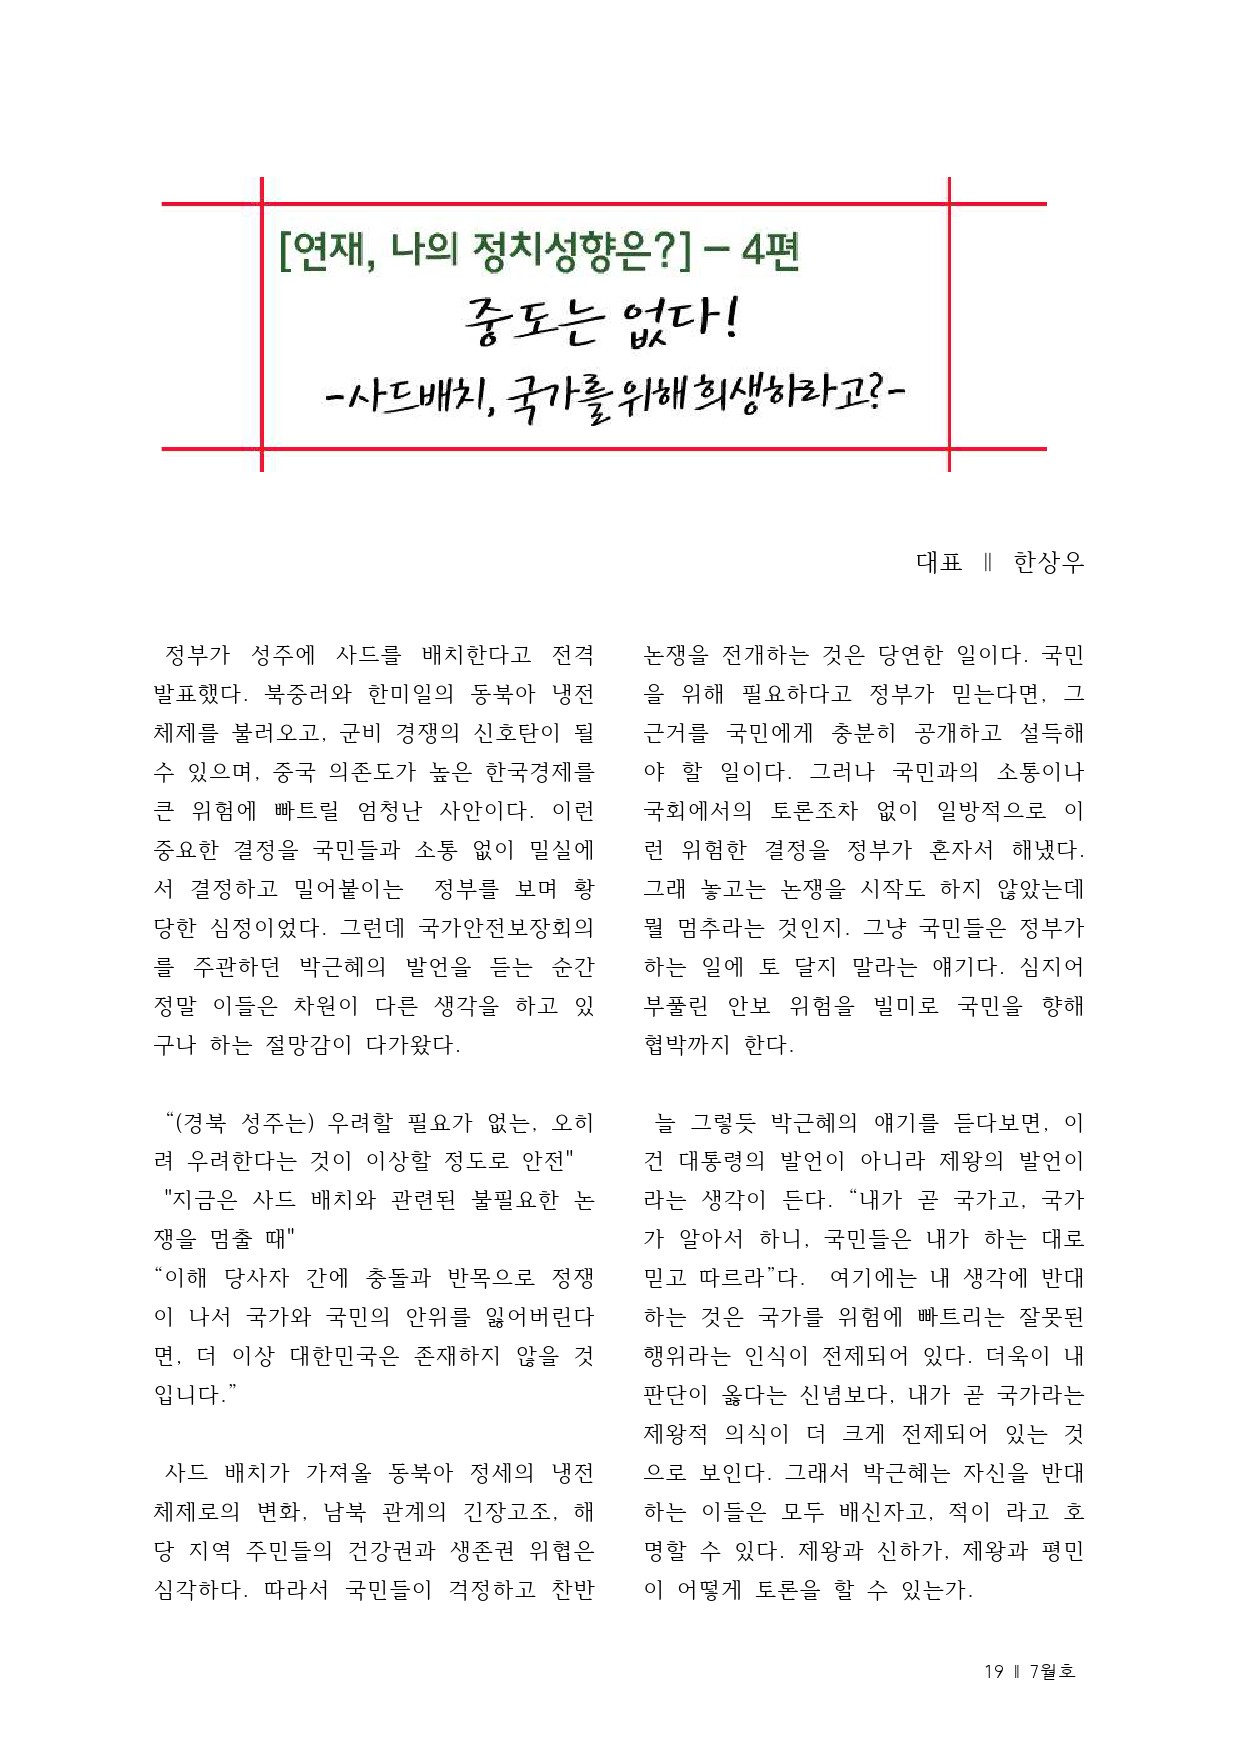 [연재, 나의 정치성향은?] - 4편
중도는 없다!
-사드배치, 국가를 위해 희생하라고?-
대표 ∥ 한상우
정부가 성주에 사드를 배치한다고 전격
발표했다. 북중러와 한미일의 동북아 냉전
체제를 불러오고, 군비 경쟁의 신호탄이 될
수 있으며, 중국 의존도가 높은 한국경제를
큰 위험에 빠트릴 엄청난 사안이다. 이런
중요한 결정을 국민들과 소통 없이 밀실에
서 결정하고 밀어붙이는 정부를 보며 황
당한 심정이었다. 그런데 국가안전보장회의
를 주관하던 박근혜의 발언을 듣는 순간
정말 이들은 차원이 다른 생각을 하고 있
구나 하는 절망감이 다가왔다.
“(경북 성주는) 우려할 필요가 없는, 오히
려 우려한다는 것이 이상할 정도로 안전"
"지금은 사드 배치와 관련된 불필요한 논
쟁을 멈출 때"
“이해 당사자 간에 충돌과 반목으로 정쟁
이 나서 국가와 국민의 안위를 잃어버린다
면, 더 이상 대한민국은 존재하지 않을 것
입니다.”
사드 배치가 가져올 동북아 정세의 냉전
체제로의 변화, 남북 관계의 긴장고조, 해
당 지역 주민들의 건강권과 생존권 위협은
심각하다. 따라서 국민들이 걱정하고 찬반
논쟁을 전개하는 것은 당연한 일이다. 국민
을 위해 필요하다고 정부가 믿는다면, 그
근거를 국민에게 충분히 공개하고 설득해
야 할 일이다. 그러나 국민과의 소통이나
국회에서의 토론조차 없이 일방적으로 이
런 위험한 결정을 정부가 혼자서 해냈다.
그래 놓고는 논쟁을 시작도 하지 않았는데
뭘 멈추라는 것인지. 그냥 국민들은 정부가
하는 일에 토 달지 말라는 얘기다. 심지어
부풀린 안보 위험을 빌미로 국민을 향해
협박까지 한다.
늘 그렇듯 박근혜의 얘기를 듣다보면, 이
건 대통령의 발언이 아니라 제왕의 발언이
라는 생각이 든다. “내가 곧 국가고, 국가
가 알아서 하니, 국민들은 내가 하는 대로
믿고 따르라”다. 여기에는 내 생각에 반대
하는 것은 국가를 위험에 빠트리는 잘못된
행위라는 인식이 전제되어 있다. 더욱이 내
판단이 옳다는 신념보다, 내가 곧 국가라는
제왕적 의식이 더 크게 전제되어 있는 것
으로 보인다. 그래서 박근혜는 자신을 반대
하는 이들은 모두 배신자고, 적이 라고 호
명할 수 있다. 제왕과 신하가, 제왕과 평민
이 어떻게 토론을 할 수 있는가.
19 ∥ 7월호